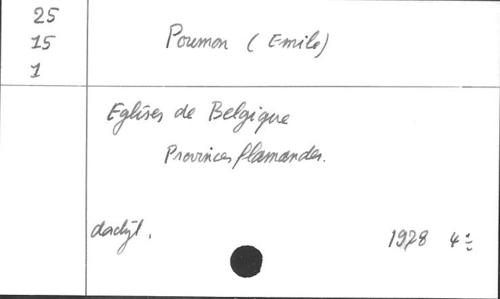 25
15
1
Poumon (Emile)
Eglises de Belgique
Provinces flamandes.
dactyl.
1978 4°